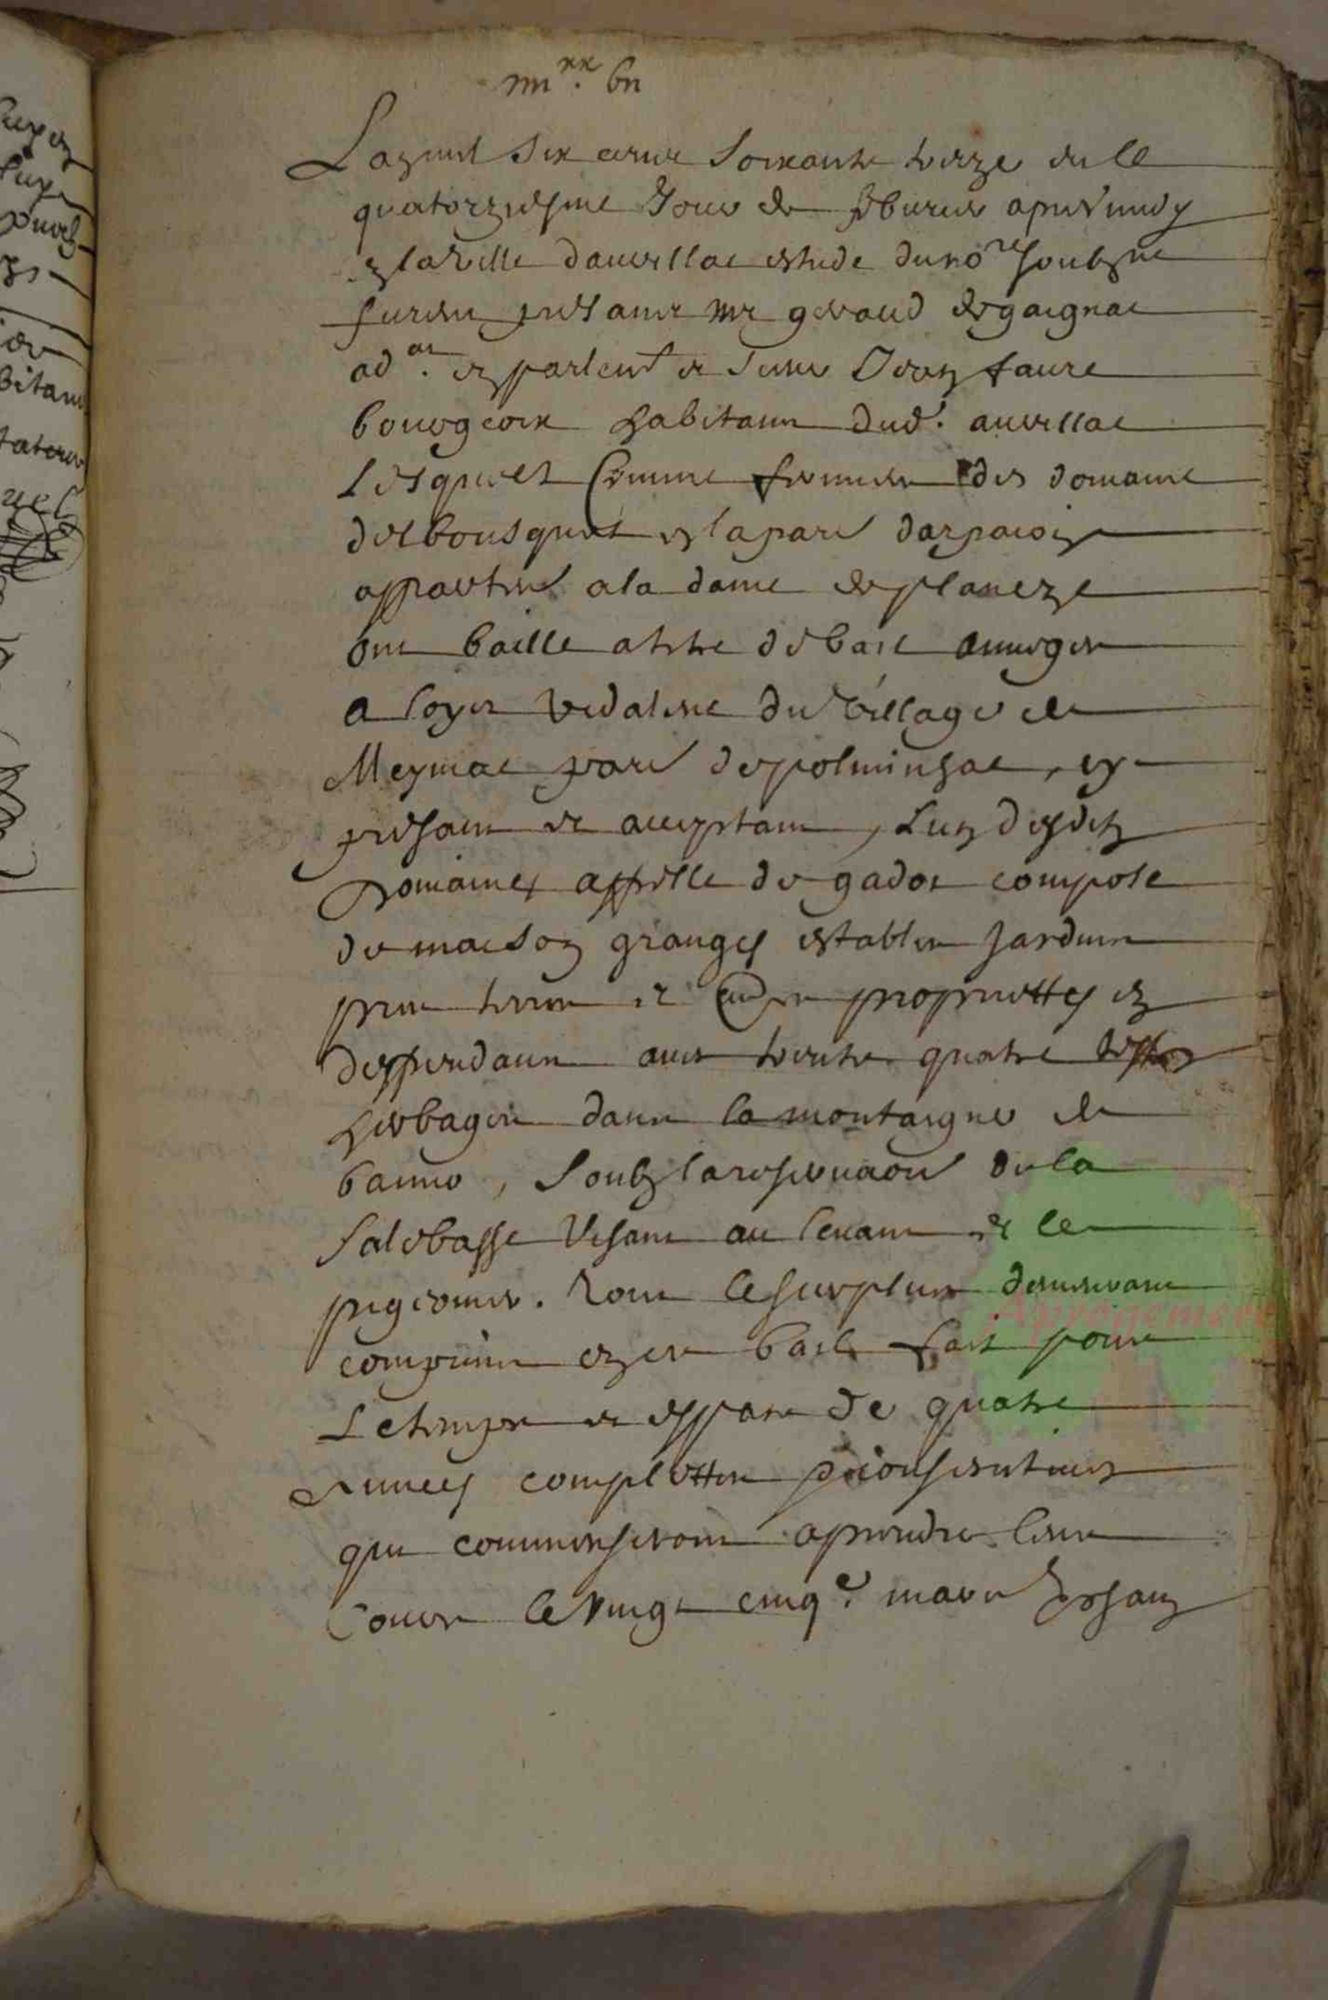 Lan mil six cens soixante treze et le
quatorziesme Jour de febvrier apres midy
en la ville daurillac estude du no.re soubzne
furent presans mr geraud de gaignac
ad.at en parlement et sieur Jean faure
bourgeois habitans dud. aurillac
Lesquels Comme fermiers des domaine
del bousquet en la par. darpaion
appartent a la dame de planeze
ont baille a titre de bail
a loyer vidal du village de
Meymac par. de polminhac, cy
presant et acceptant, Lun desdits
Domaines appelle de gadot compose
de maison granges estables Jardins
pres terres et autres proprietties en
deppendans avec trente quatre testes
herbages dans la montaigne de
banne, soubz la reservaon de la
sale basse visant au levant et le
pigeonier. Tout le surplus demeurant
comprins en ce bail fait pour
Le temps et espace de quatre
Annees complettes consecutives
qui commenseront a prendre leur
Cours le vingt cinq.e mars prochain